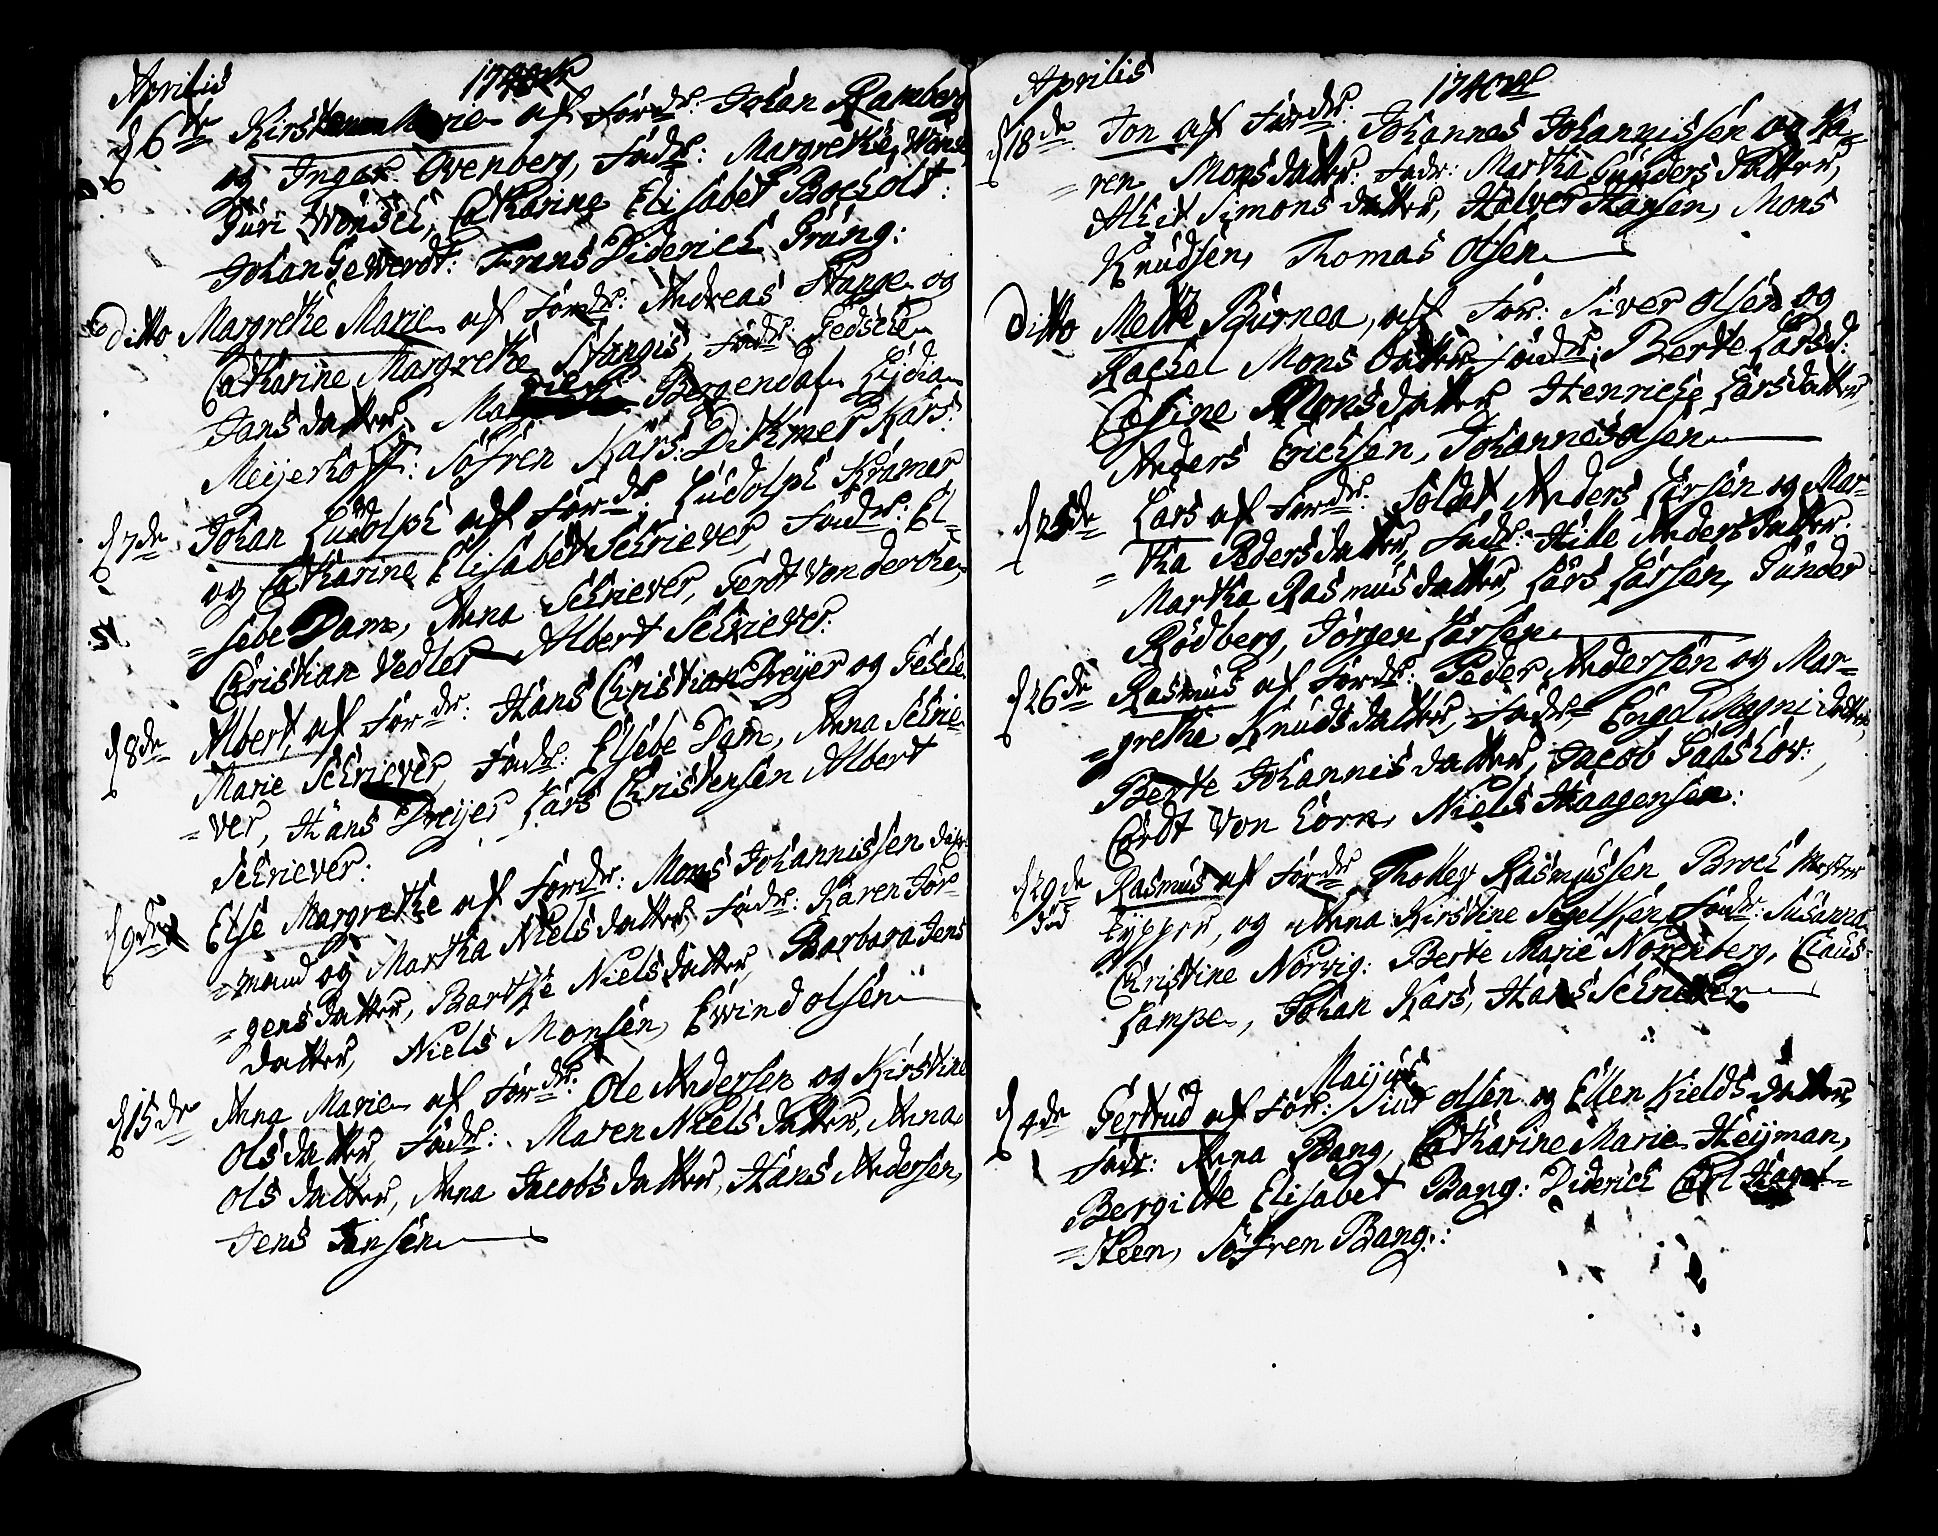 Aprilis
d 6te Kirsten Marie af Forældr: Johan Ramberg
og Inger Ovenberg, Fadr: Margrethe Wense
Guri Wensel, Catharine Elisabet Bocholt:
Johan Gewerdt: Frans Diderich Grüng:
Ditto Margrethe Marie af Fordr: Andreas Stange og
Catharine Margrethe Stangis, Fadr: Gedsche
Jans datter, Bergendal Lydia
Meijerhoff: Söfren Kars: Dithmer Kars:
d 7de Johan Ludolph af Fordr: Ludolph Kramer
og Catharine Elisabet Schriever, Fadr: El=
=sebe Dam, Anna Schriever, Gerdt von der
Christian Vedler Albert Schriever:
d 8de Albert af Fordr: Hans Christian Dreijer og Gesche
Marie Schriever, Fadr: Elsebe Dam, Anna Schrie=
=ver, Hans Dreijer Lars Christensen Albert
Schriever:
d 9de Else Margrethe af Fordr: Mons Johannissen
=mand og Martha Niels datter, Fadr: Karen Jör=
=gens datter, Barthe Niels datter, Barbara Jens
datter, Niels Monsen, Evind Olsen
d 15de Anna Marie af Fordr: Ole Andersen og Kirstine
Ols datter, Fadr: Maren Niels datter, Anna
Ols datter, Anna Jacobs datter, Hans Andersen,
Jens Jansen
Aprilis 1740
d 18de Jon af Fordr: Johannes Johannissen og Ka=
=ren Mons datter: Fadr: Martha Gunders datter,
Alhit Simons datter, Halver Hansen, Mons
Knudsen, Thomas Olsen
Ditto Mette Burnea, af For: Siver Olsen og
Rachel Mons datter, Fadr: Berte Larsd:
Casine Mons datter, Henriche Lars datter,
Anders Erichsen, Johannes Olsen
d 25de Lars af Fordr: Soldat Anders Larsen og Mar=
=tha Peders datter, Fadr: Hille Anders datter.
Martha Rasmus datter, Lars Larsen, Gunder
Rödberg, Jörgen Larsen
d 26de Rasmus af Fordr: Peder Andersen og Mar=
=grethe Knuds datter, Fadr: Engel Magni datter,
Berte Johannis datter, Jacob Gadskov:
Cordt von Lörn, Niels Haagensen:
d 29de Rasmus af Fordr Tholley Rasmussen Broch Mester
typper, og Anna Kirstine Segelken, Fadr: Susanna
Christine Nörvig: Berte Marie Norenberg, Claus
Lampe, Johan Kars, Hans Schriever
Maijus
d 4de Gertrud af For: Siur Olsen og Ellen Kields datter,
Fadr: Anna Bang, Catharine Marie Heijman,
Bergitte Elisabet Bang: Diderich Carl Hagel=
=steen, Söfren Bang: